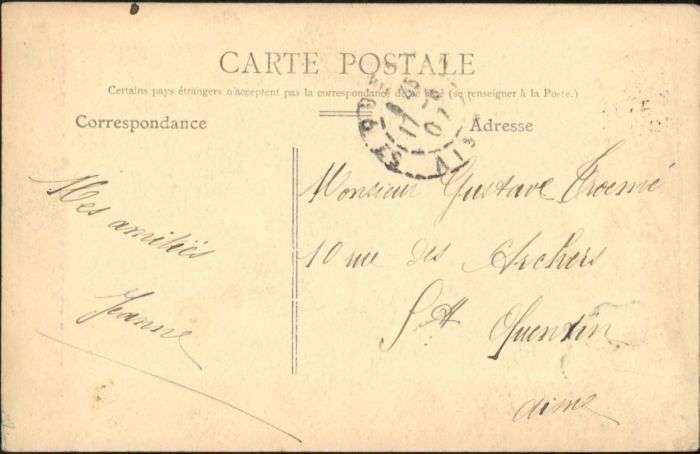 CARTE POSTALE
Certains pays étrangers n'acceptent pas la correspondance de ce côté (se renseigner à la Poste.)
Correspondance
Adresse
Mes amitiés
Jeanne
Monsieur Gustave
10 rue des Archers
St Quentin
aisne